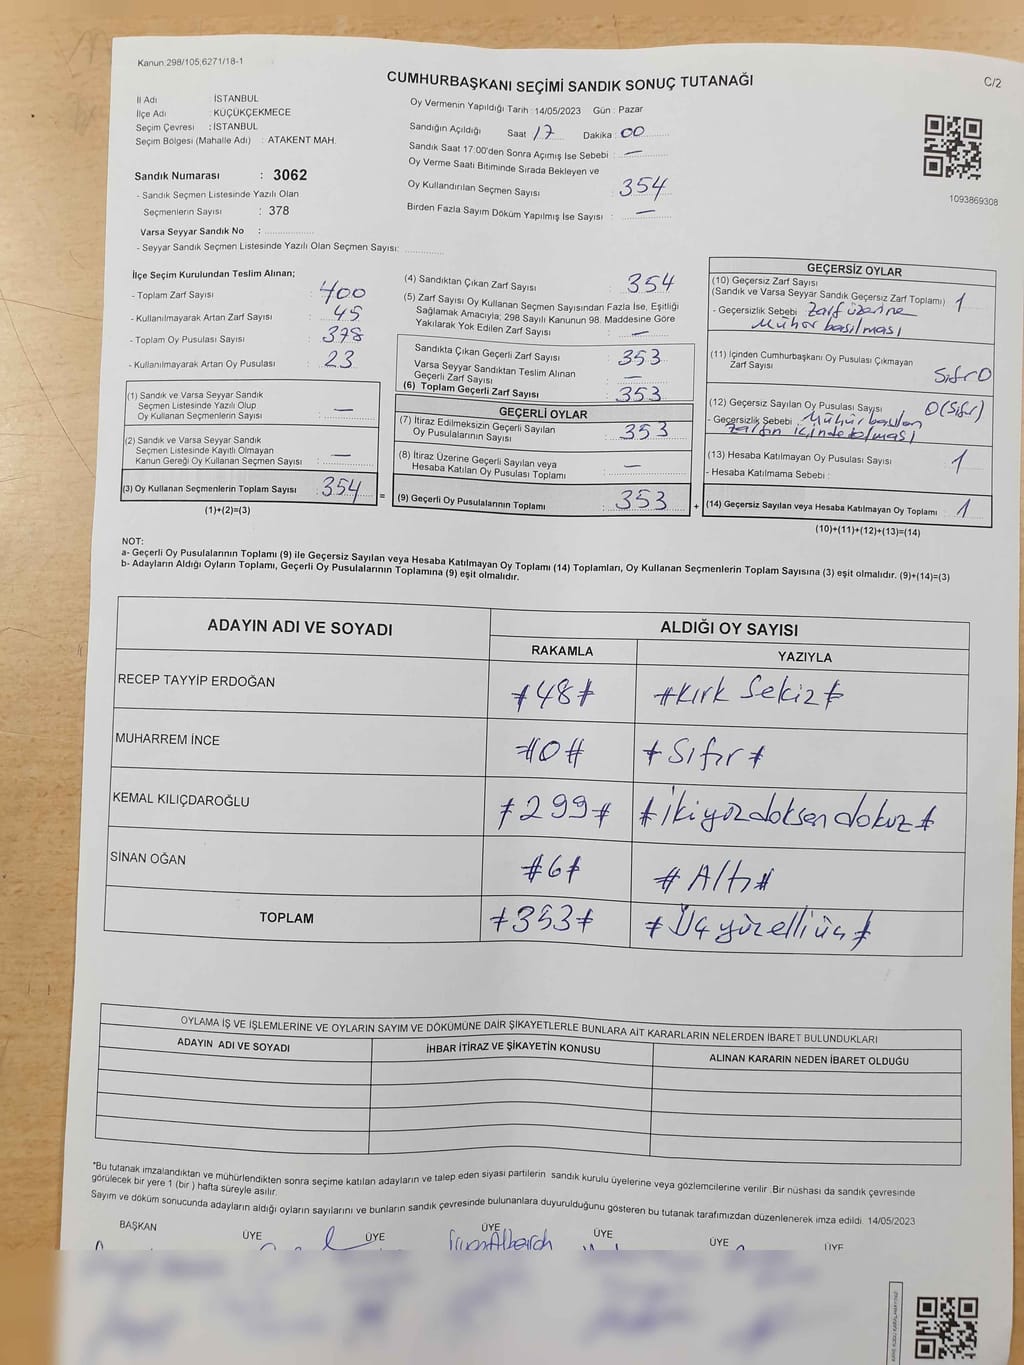 Kanun:298/105;6271/18-1
C/2
CUMHURBAŞKANI SEÇİMİ SANDIK SONUÇ TUTANAĞI
İl Adı : İSTANBUL
İlçe Adı : KÜÇÜKÇEKMECE
Seçim Çevresi : İSTANBUL
Seçim Bölgesi (Mahalle Adı) : ATAKENT MAH.
Sandık Numarası : 3062
- Sandık Seçmen Listesinde Yazılı Olan
Seçmenlerin Sayısı : 378
Varsa Seyyar Sandık No :
- Seyyar Sandık Seçmen Listesinde Yazılı Olan Seçmen Sayısı:
Oy Vermenin Yapıldığı Tarih : 14/05/2023 Gün : Pazar
Sandığın Açıldığı Saat 17 Dakika : 00
Sandık Saat 17:00'den Sonra Açımış İse Sebebi : —
Oy Verme Saati Bitiminde Sırada Bekleyen ve
Oy Kullandırılan Seçmen Sayısı : 354
Birden Fazla Sayım Döküm Yapılmış İse Sayısı : —
1093869308
İlçe Seçim Kurulundan Teslim Alınan;
- Toplam Zarf Sayısı : 400
- Kullanılmayarak Artan Zarf Sayısı : 45
- Toplam Oy Pusulası Sayısı : 378
- Kullanılmayarak Artan Oy Pusulası : 23
(1) Sandık ve Varsa Seyyar Sandık
Seçmen Listesinde Yazılı Olup
Oy Kullanan Seçmenlerin Sayısı : —
(2) Sandık ve Varsa Seyyar Sandık
Seçmen Listesinde Kayıtlı Olmayan
Kanun Gereği Oy Kullanan Seçmen Sayısı : —
(3) Oy Kullanan Seçmenlerin Toplam Sayısı : 354
(1)+(2)=(3)
=
(4) Sandıktan Çıkan Zarf Sayısı : 354
(5) Zarf Sayısı Oy Kullanan Seçmen Sayısından Fazla İse, Eşitliği
Sağlamak Amacıyla; 298 Sayılı Kanunun 98. Maddesine Göre
Yakılarak Yok Edilen Zarf Sayısı : —
Sandıkta Çıkan Geçerli Zarf Sayısı : 353
Varsa Seyyar Sandıktan Teslim Alınan
Geçerli Zarf Sayısı : —
(6) Toplam Geçerli Zarf Sayısı : 353
GEÇERLİ OYLAR
(7) İtiraz Edilmeksizin Geçerli Sayılan
Oy Pusulalarının Sayısı : 353
(8) İtiraz Üzerine Geçerli Sayılan veya
Hesaba Katılan Oy Pusulası Toplamı : —
(9) Geçerli Oy Pusulalarının Toplamı : 353
+
GEÇERSİZ OYLAR
(10) Geçersiz Zarf Sayısı
(Sandık ve Varsa Seyyar Sandık Geçersiz Zarf Toplamı) 1
- Geçersizlik Sebebi : Zarf üzerine
Mühür basılması
(11) İçinden Cumhurbaşkanı Oy Pusulası Çıkmayan
Zarf Sayısı : Sıfır 0
(12) Geçersiz Sayılan Oy Pusulası Sayısı 0 (Sıfır)
- Geçersizlik Sebebi : Mühür basılan
zarfın içinde olması
(13) Hesaba Katılmayan Oy Pusulası Sayısı : 1
- Hesaba Katılmama Sebebi :
(14) Geçersiz Sayılan veya Hesaba Katılmayan Oy Toplamı : 1
(10)+(11)+(12)+(13)=(14)
NOT:
a- Geçerli Oy Pusulalarının Toplamı (9) ile Geçersiz Sayılan veya Hesaba Katılmayan Oy Toplamı (14) Toplamları, Oy Kullanan Seçmenlerin Toplam Sayısına (3) eşit olmalıdır. (9)+(14)=(3)
b- Adayların Aldığı Oyların Toplamı, Geçerli Oy Pusulalarının Toplamına (9) eşit olmalıdır.
ADAYIN ADI VE SOYADI ALDIĞI OY SAYISI
RAKAMLA YAZIYLA
RECEP TAYYİP ERDOĞAN #48# #Kırk Sekiz#
MUHARREM İNCE #0# #Sıfır#
KEMAL KILIÇDAROĞLU #299# #İkiyüzdoksandokuz#
SİNAN OĞAN #6# #Altı#
TOPLAM #353# #Üçyüzelliüç#
OYLAMA İŞ VE İŞLEMLERİNE VE OYLARIN SAYIM VE DÖKÜMÜNE DAİR ŞİKAYETLERLE BUNLARA AİT KARARLARIN NELERDEN İBARET BULUNDUKLARI
ADAYIN ADI VE SOYADI İHBAR İTİRAZ VE ŞİKAYETİN KONUSU ALINAN KARARIN NEDEN İBARET OLDUĞU
*Bu tutanak imzalandıktan ve mühürlendikten sonra seçime katılan adayların ve talep eden siyasi partilerin sandık kurulu üyelerine veya gözlemcilerine verilir .Bir nüshası da sandık çevresinde
görülecek bir yere 1 (bir ) hafta süreyle asılır.
Sayım ve döküm sonucunda adayların aldığı oyların sayılarını ve bunların sandık çevresinde bulunanlara duyurulduğunu gösteren bu tutanak tarafımızdan düzenlenerek imza edildi. 14/05/2023
BAŞKAN ÜYE ÜYE ÜYE ÜYE ÜYE ÜYE